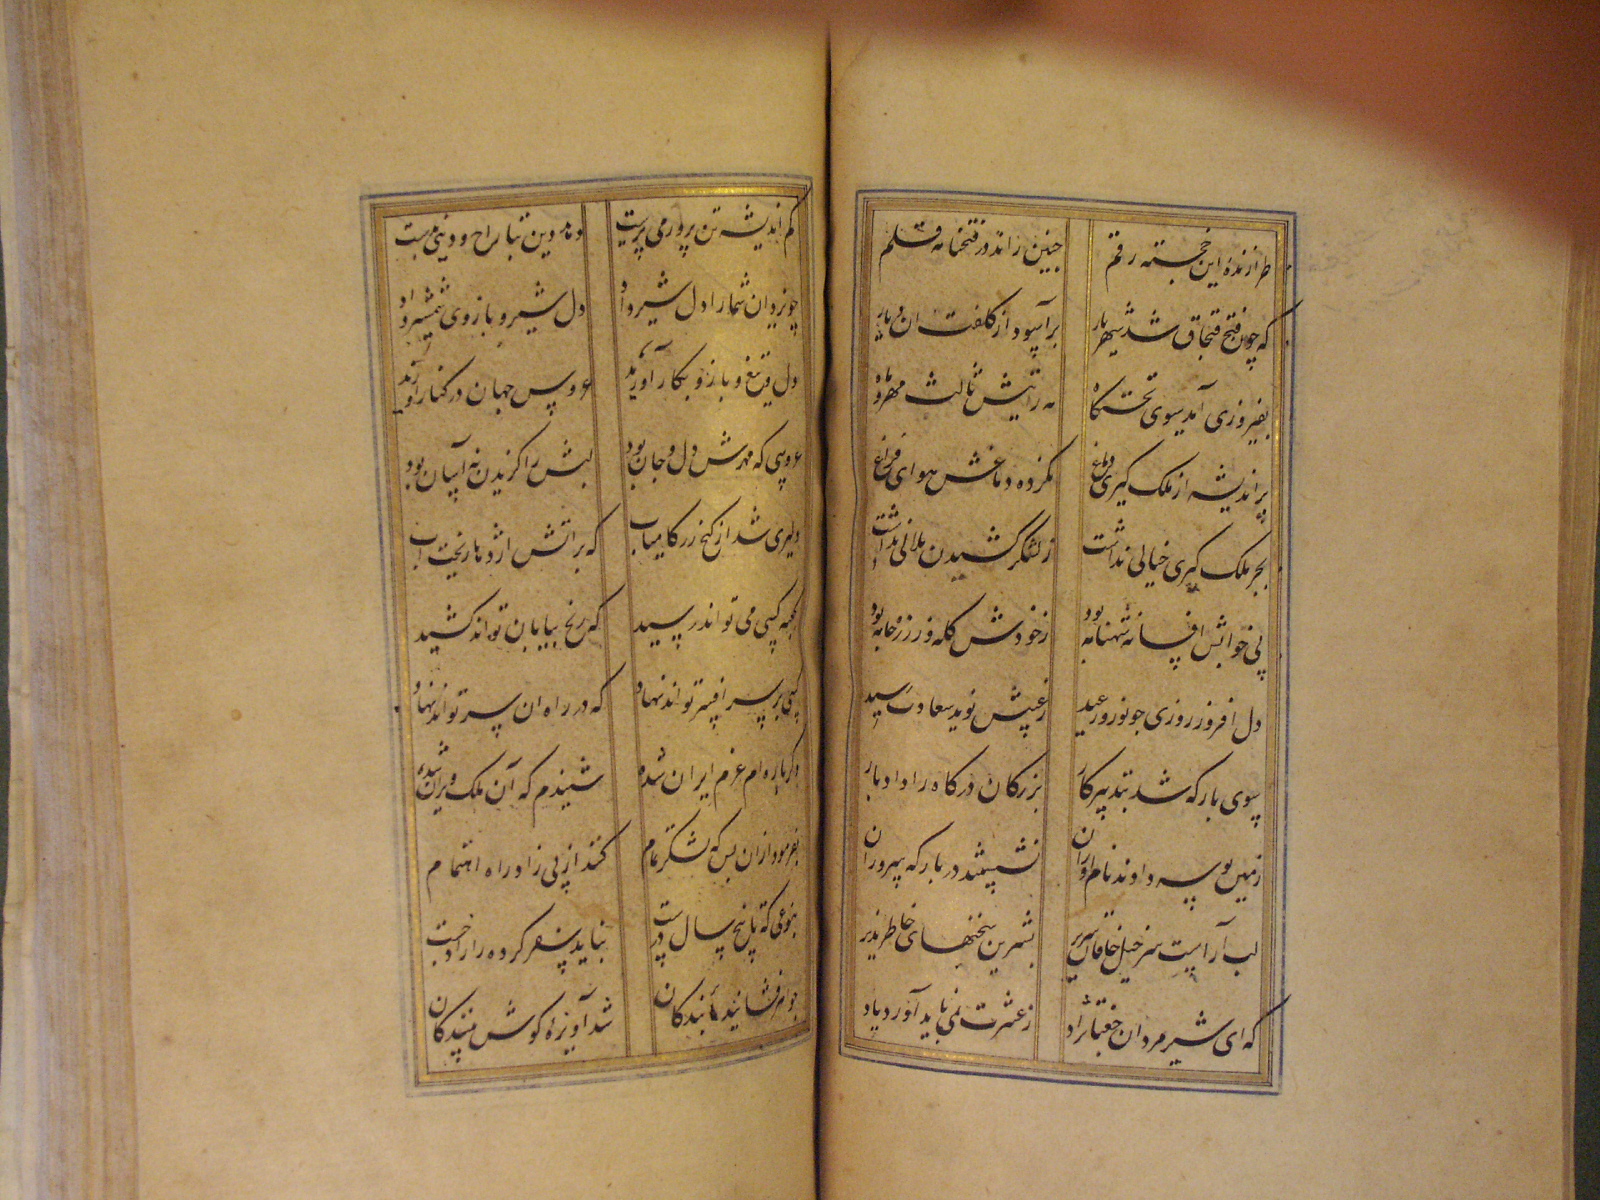 طرازنده این خجسته رقم چنین راند در فتحنامه قلم
که چون فتح قبچاق شد شهریار برآسود از کلفت آن دیار
بفیروزی آمد سوی تختگاه مه رایتش ثالث مهر و ماه
پر اندیشه از ملک گیری دماغ نکرده دماغش هوای فراغ
بجز ملک گیری خیالی نداشت ز لشکر کشیدن ملالی نداشت
پی خوابش افسانه شهنامه بود ز خودش کله و ز زره جامه بود
دل افروز روزی چو نوروز عید ز غیبش نوید سعادت رسید
سوی بارگه شد بتدبیر کار بزرگان درگاه را داد بار
زمین بوسه دادند نام اوران نشستند در بارگه سروران
لب آراست سرخیل خاقان سریر بشیرین سخنهای خاطر پذیر
که ای شیر مردان جغتا نژاد ز عشرت نمی باید آورد یاد
کم اندیشه تن پرور می پرست
چو یزدان شما را دل شیر داد دل شیر و بازوی شمشیر داد
دل و تیغ و بازو بکار آورید عروس جهان در کنار آورید
عروسی که مهرش دل و جان بود لبش را گزیدن نه آسان بود
دلیری شد از گنج زر کامیاب که بر آتش اژدها ریخت آب
بکعبه کسی می تواند رسید که رنج بیابان تواند کشید
کسی بر سر افسر تواند نهاد که در راه آن سر تواند نهاد
دگرباره ام عزم ایران شده شنیدم که آن ملک ویران شده
بفرمود ازان پس که لشکر تمام کنند از پی زاد راه اهتمام
بنوعی که تا پنج سال درست نباید سفر کرده را زاد جست
جواهر فشانید بر بندگان شد آویزه گوش